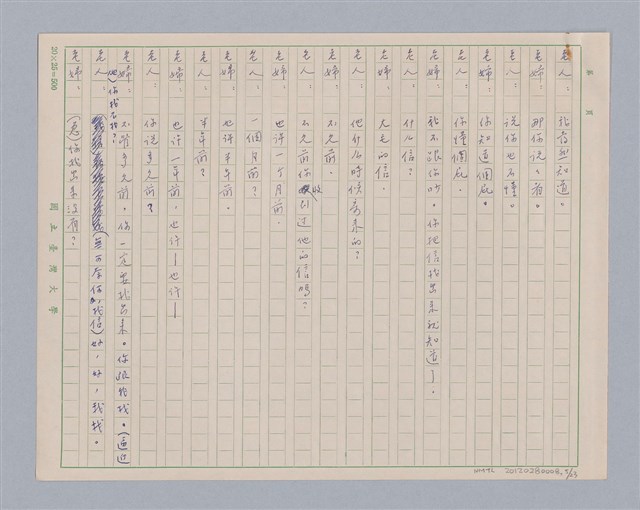 第 頁
老人：我當然知道。
老婦：那你說說看。
老人：說你也不懂。
老婦：你知道個屁。
老人：你懂個屁。
老婦：我不跟你吵。你把信找出來就知道了。
老人：什么信？
老婦：大毛的信。
老人：他什么时候寄來的？
老婦：不久前。
老人：不久前你收到过他的信嗎？
老婦：也许一个月前。
老人：一個月前？
老婦：也许半年前。
老人：半年前？
老婦：也许一年前，也许－也许－
老人：你说多久前？
老婦：不管多久前，你一定要找出來。你跟我找。（逼近他）你找不找？
老人：（無可奈何，找信）好，好，我找。
老婦：你找出來沒有？
20×25=500
國立臺灣大學
NMTL 20120280008